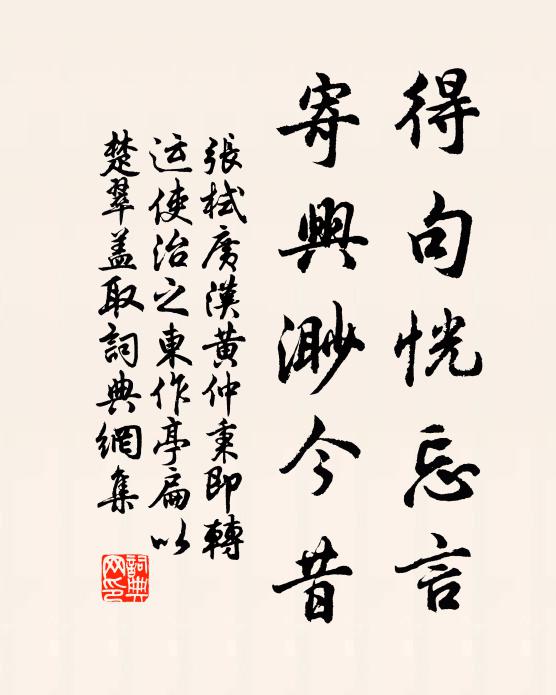 得句恍忘言
寄興渺今昔
張栻廣漢黃仲秉即轉
运使治之東作亭扁以
楚翠盖取詞典網集
詞典網印